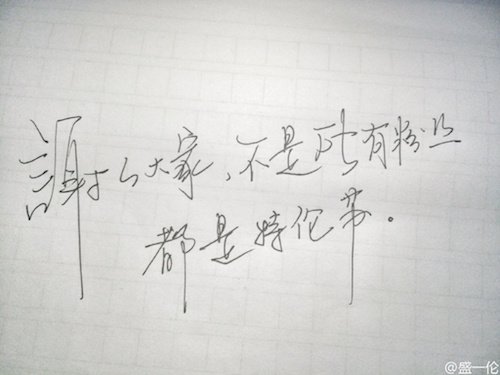 謝么大家,不是所有粉丝
都是特伦苏。
@盛一伦